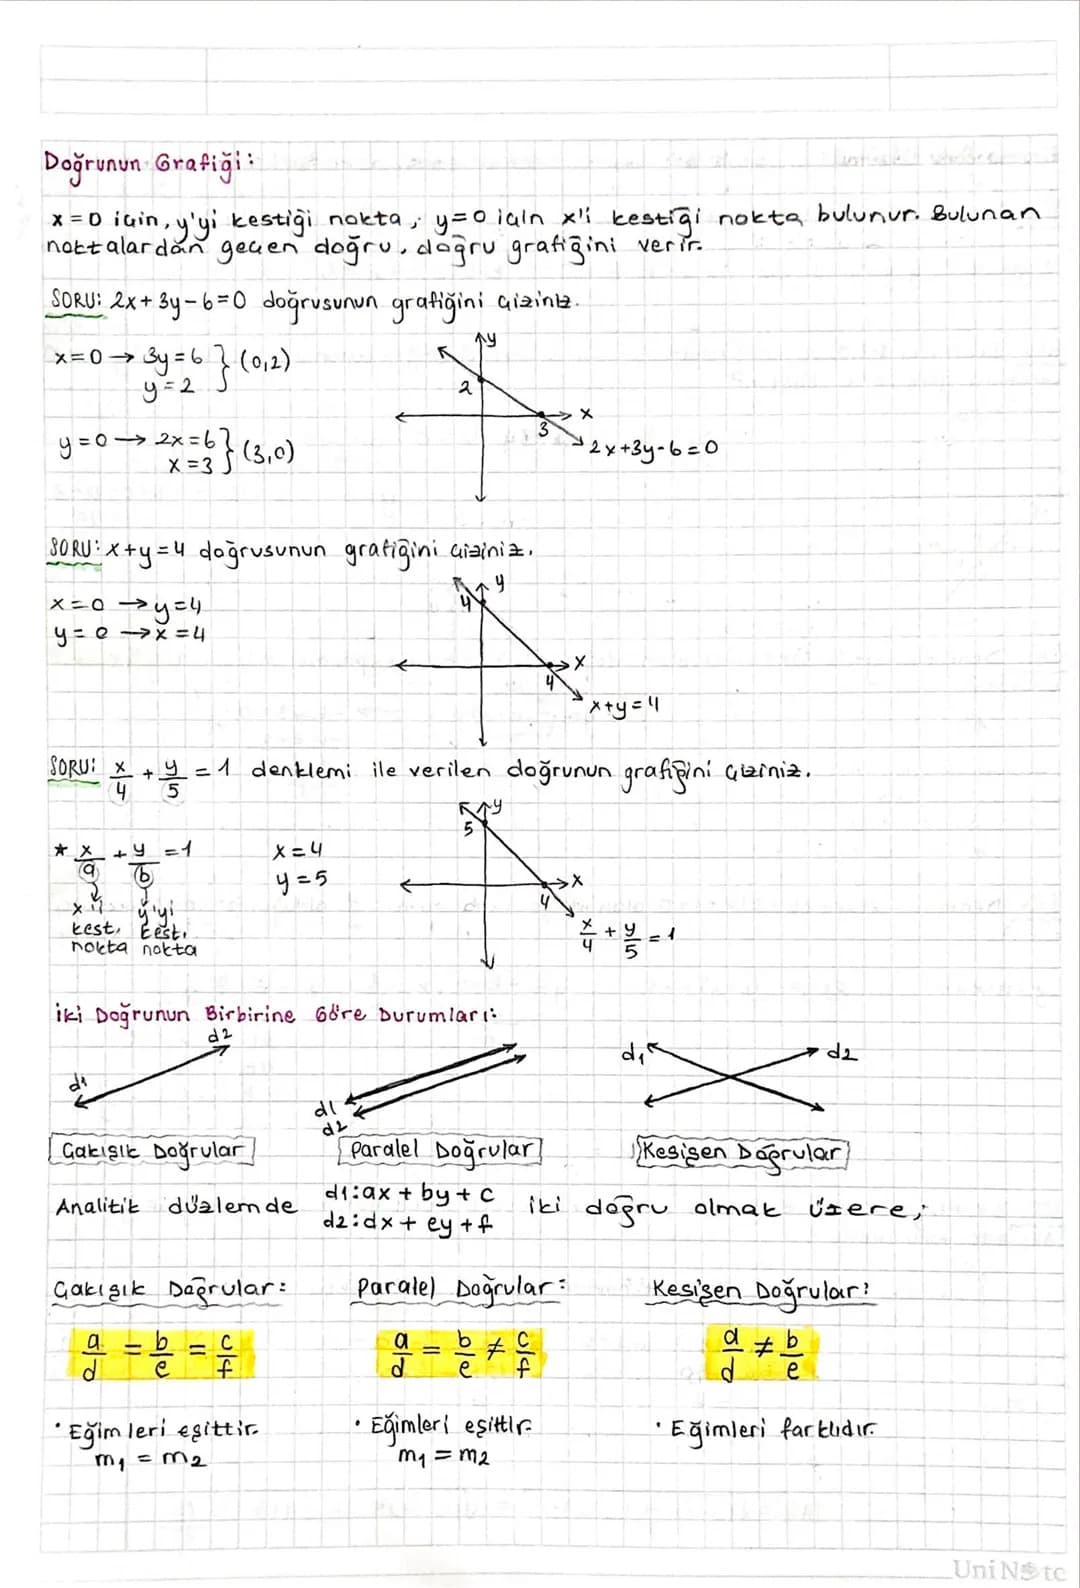 Doğrunun Grafiği:
x=0 için, y'yi kestiği nokta, y=0 için x'i kestiği nokta bulunur. Bulunan
noktalardan geçen doğru, doğru grafiğini verir.
SORU: 2x+3y-6=0 doğrusunun grafiğini çiziniz.
x=0 → 3y=6 } (0,2)
y=2
y=0 → 2x=6 } (3,0)
x=3
y
2
x
3
2x+3y-6=0
SORU: x+y=4 doğrusunun grafiğini çiziniz.
x=0 → y=4
y=0 → x=4
y
4
x
4
x+y=4
SORU: x/4 + y/5 = 1 denklemi ile verilen doğrunun grafiğini çiziniz.
* x/a + y/b = 1
x'i y'yi
kest. kesti
nokta nokta
x=4
y=5
y
5
x
4
x/4 + y/5 = 1
İki Doğrunun Birbirine Göre Durumları:
d2
d1
d1
d2
d1
d2
Çakışık Doğrular
Paralel Doğrular
Kesişen Doğrular
Analitik düzlemde d1:ax+by+c iki doğru olmak üzere;
d2:dx+ey+f
Çakışık Doğrular:
Paralel Doğrular:
Kesişen Doğrular:
a/d = b/e = c/f
a/d = b/e ≠ c/f
a/d ≠ b/e
· Eğimleri eşittir.
m1 = m2
· Eğimleri eşittir.
m1 = m2
· Eğimleri farklıdır.
UniNote